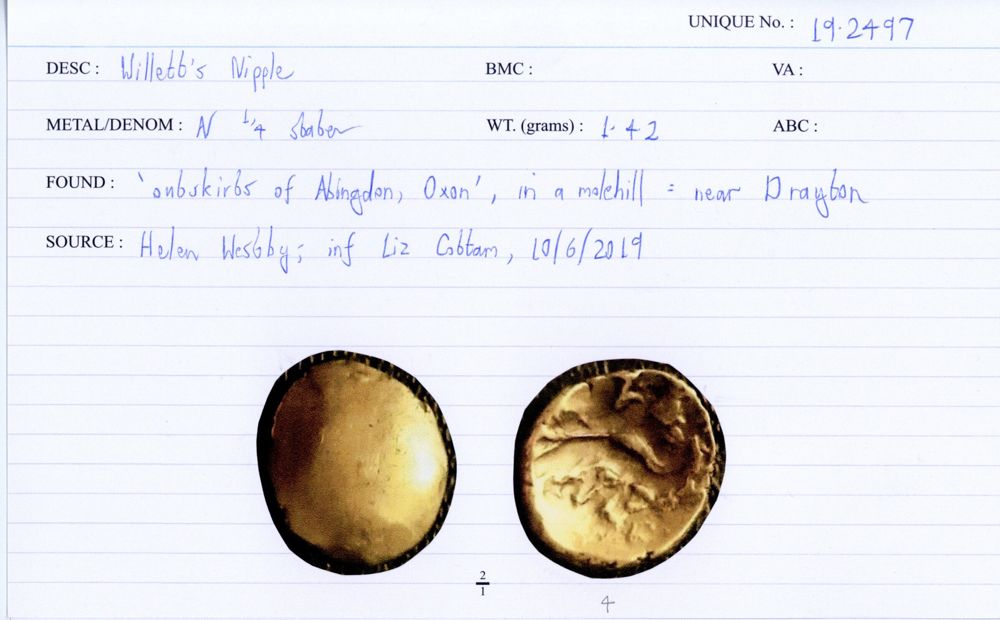 UNIQUE No. : 19.2497
DESC : Willett's Nipple BMC : VA :
METAL/DENOM : N 1/4 stater WT. (grams) : 1.42 ABC :
FOUND : 'outskirts of Abingdon, Oxon', in a molehill = near Drayton
SOURCE : Helen Westby; inf Liz Cottam, 10/6/2019
2/1
4